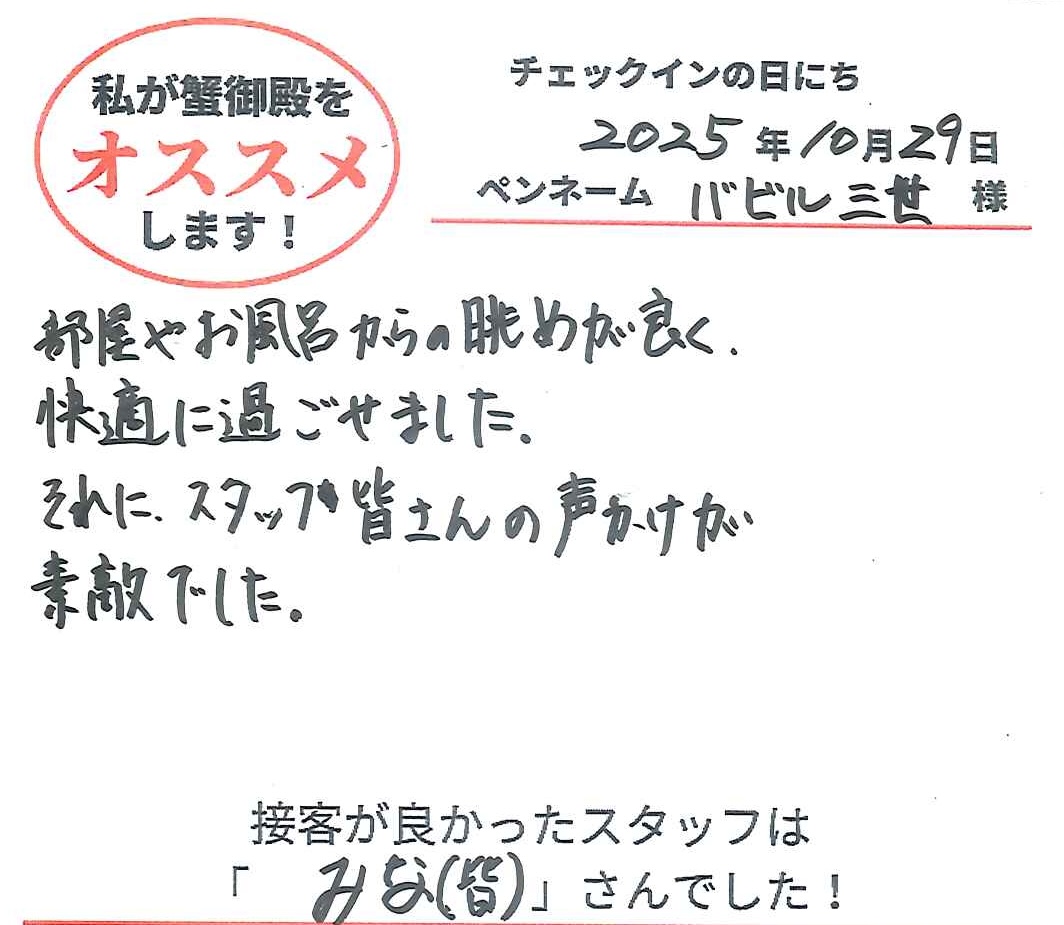 私が蟹御殿を
オススメ
します！
チェックインの日にち
2025年10月29日
ペンネーム バビル三世 様
部屋やお風呂からの眺めが良く、
快適に過ごせました。
それに、スタッフ皆さんの声かけが
素敵でした。
接客が良かったスタッフは
「みな(皆)」さんでした！